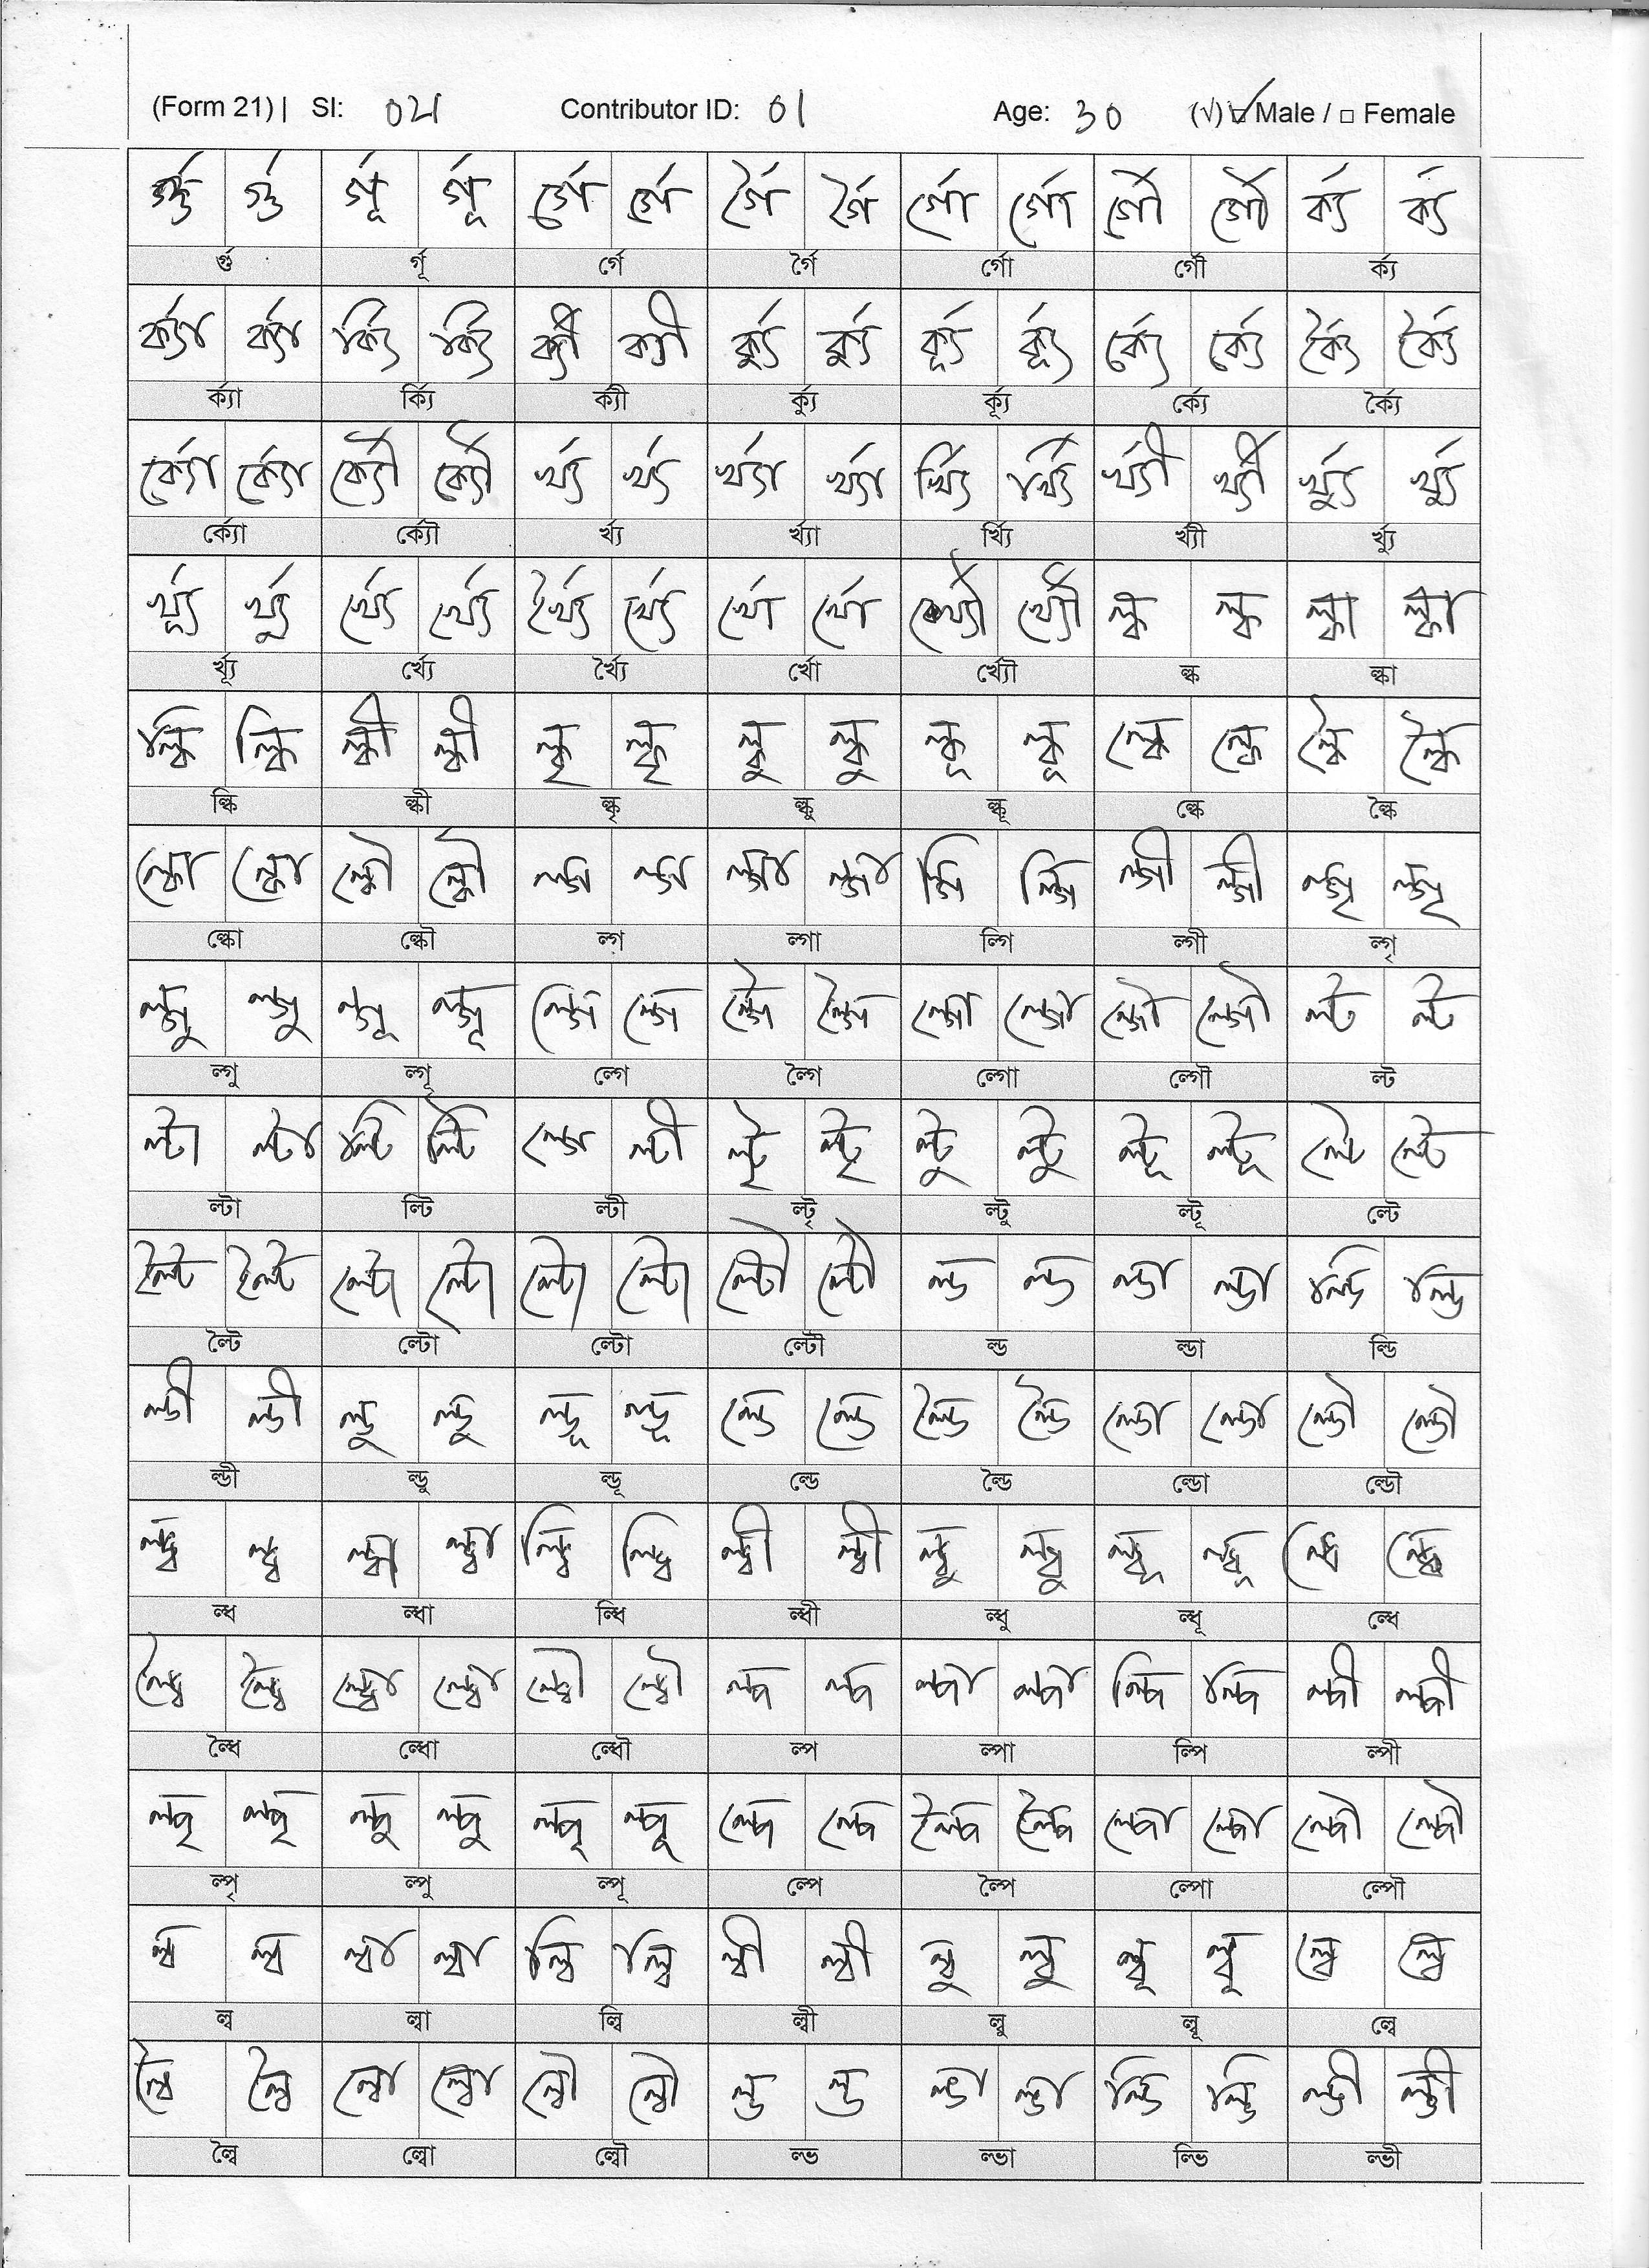 (Form 21) | Sl: Contributor ID: 01 Age: 30 (√) Male / □ Female
র্গু র্গু র্গূ র্গূ র্গে র্গে র্গৈ র্গৈ র্গো র্গো র্গৌ র্গৌ র্ক্য র্ক্য
র্গু র্গূ র্গে র্গৈ র্গো র্গৌ র্ক্য
র্ক্যা র্ক্যা র্ক্যি র্ক্যি র্ক্যী ক্যী র্ক্যু র্ক্যু র্ক্যূ র্ক্যূ র্ক্যে র্ক্যে র্ক্যৈ র্ক্যৈ
র্ক্যা র্ক্যি র্ক্যী র্ক্যু র্ক্যূ র্ক্যে র্ক্যৈ
র্ক্যো র্ক্যো র্ক্যৌ র্ক্যৌ র্খ্য র্খ্য র্খ্যা র্খ্যা র্খ্যি র্খ্যি র্খ্যী র্খ্যী র্খ্যু র্খ্যু
র্ক্যো র্ক্যৌ র্খ্য র্খ্যা র্খ্যি র্খ্যী র্খ্যু
র্খ্যূ র্খ্যু র্খ্যে র্খ্যে র্খ্যৈ র্খ্যে র্খো র্খো র্খ্যৌ র্খ্যৌ ল্ক ল্ক ল্কা ল্কা
র্খ্যূ র্খ্যে র্খ্যৈ র্খো র্খ্যৌ ল্ক ল্কা
ল্কি ল্কি ল্কী ল্কী ল্কৃ ল্কৃ ল্কু ল্কু ল্কূ ল্কূ ল্কে ল্কে ল্কৈ ল্কৈ
ল্কি ল্কী ল্কৃ ল্কু ল্কূ ল্কে ল্কৈ
ল্কো ল্কো ল্কৌ ল্কৌ ল্গ ল্গ ল্গা ল্গা ল্গি ল্গি ল্গী ল্গী ল্গৃ ল্গৃ
ল্কো ল্কৌ ল্গ ল্গা ল্গি ল্গী ল্গৃ
ল্গু ল্গু ল্গূ ল্গূ ল্গে ল্গে ল্গৈ ল্গৈ ল্গো ল্গো ল্গৌ ল্গৌ ল্ট ল্ট
ল্গু ল্গূ ল্গে ল্গৈ ল্গো ল্গৌ ল্ট
ল্টা ল্টা ল্টি ল্টি ল্গে ল্টী ল্টৃ ল্টৃ ল্টু ল্টু ল্টূ ল্টূ ল্টে ল্টে
ল্টা ল্টি ল্টী ল্টৃ ল্টু ল্টূ ল্টে
ল্টৈ ল্টৈ ল্টো ল্টো ল্টো ল্টো ল্টৌ ল্টৌ ল্ড ল্ড ল্ডা ল্ডা ল্ডি ল্ডি
ল্টৈ ল্টো ল্টো ল্টৌ ল্ড ল্ডা ল্ডি
ল্ডী ল্ডী ল্ডু ল্ডু ল্ডূ ল্ডূ ল্ডে ল্ডে ল্ডৈ ল্ডৈ ল্ডো ল্ডো ল্ডৌ ল্ডৌ
ল্ডী ল্ডু ল্ডূ ল্ডে ল্ডৈ ল্ডো ল্ডৌ
ল্ধ ল্ধ ল্ধা ল্ধা ল্ধি ল্ধি ল্ধী ল্ধী ল্ধু ল্ধু ল্ধূ ল্ধূ ল্ধে ল্ধে
ল্ধ ল্ধা ল্ধি ল্ধী ল্ধু ল্ধূ ল্ধে
ল্ধৈ ল্ধৈ ল্ধো ল্ধো ল্ধৌ ল্ধৌ ল্প ল্প ল্পা ল্পা ল্পি ল্পি ল্পী ল্পী
ল্ধৈ ল্ধো ল্ধৌ ল্প ল্পা ল্পি ল্পী
ল্পৃ ল্পৃ ল্পু ল্পু ল্পূ ল্পূ ল্পে ল্পে ল্পৈ ল্পৈ ল্পো ল্পো ল্পৌ ল্পৌ
ল্পৃ ল্পু ল্পূ ল্পে ল্পৈ ল্পো ল্পৌ
ল্ব ল্ব ল্বা ল্বা ল্বি ল্বি ল্বী ল্বী ল্বু ল্বু ল্বূ ল্বূ ল্বে ল্বে
ল্ব ল্বা ল্বি ল্বী ল্বু ল্বূ ল্বে
ল্বৈ ল্বৈ ল্বো ল্বো ল্বৌ ল্বৌ ল্ভ ল্ভ ল্ভা ল্ভা ল্ভি ল্ভি ল্ভী ল্ভী
ল্বৈ ল্বো ল্বৌ ল্ভ ল্ভা ল্ভি ল্ভী